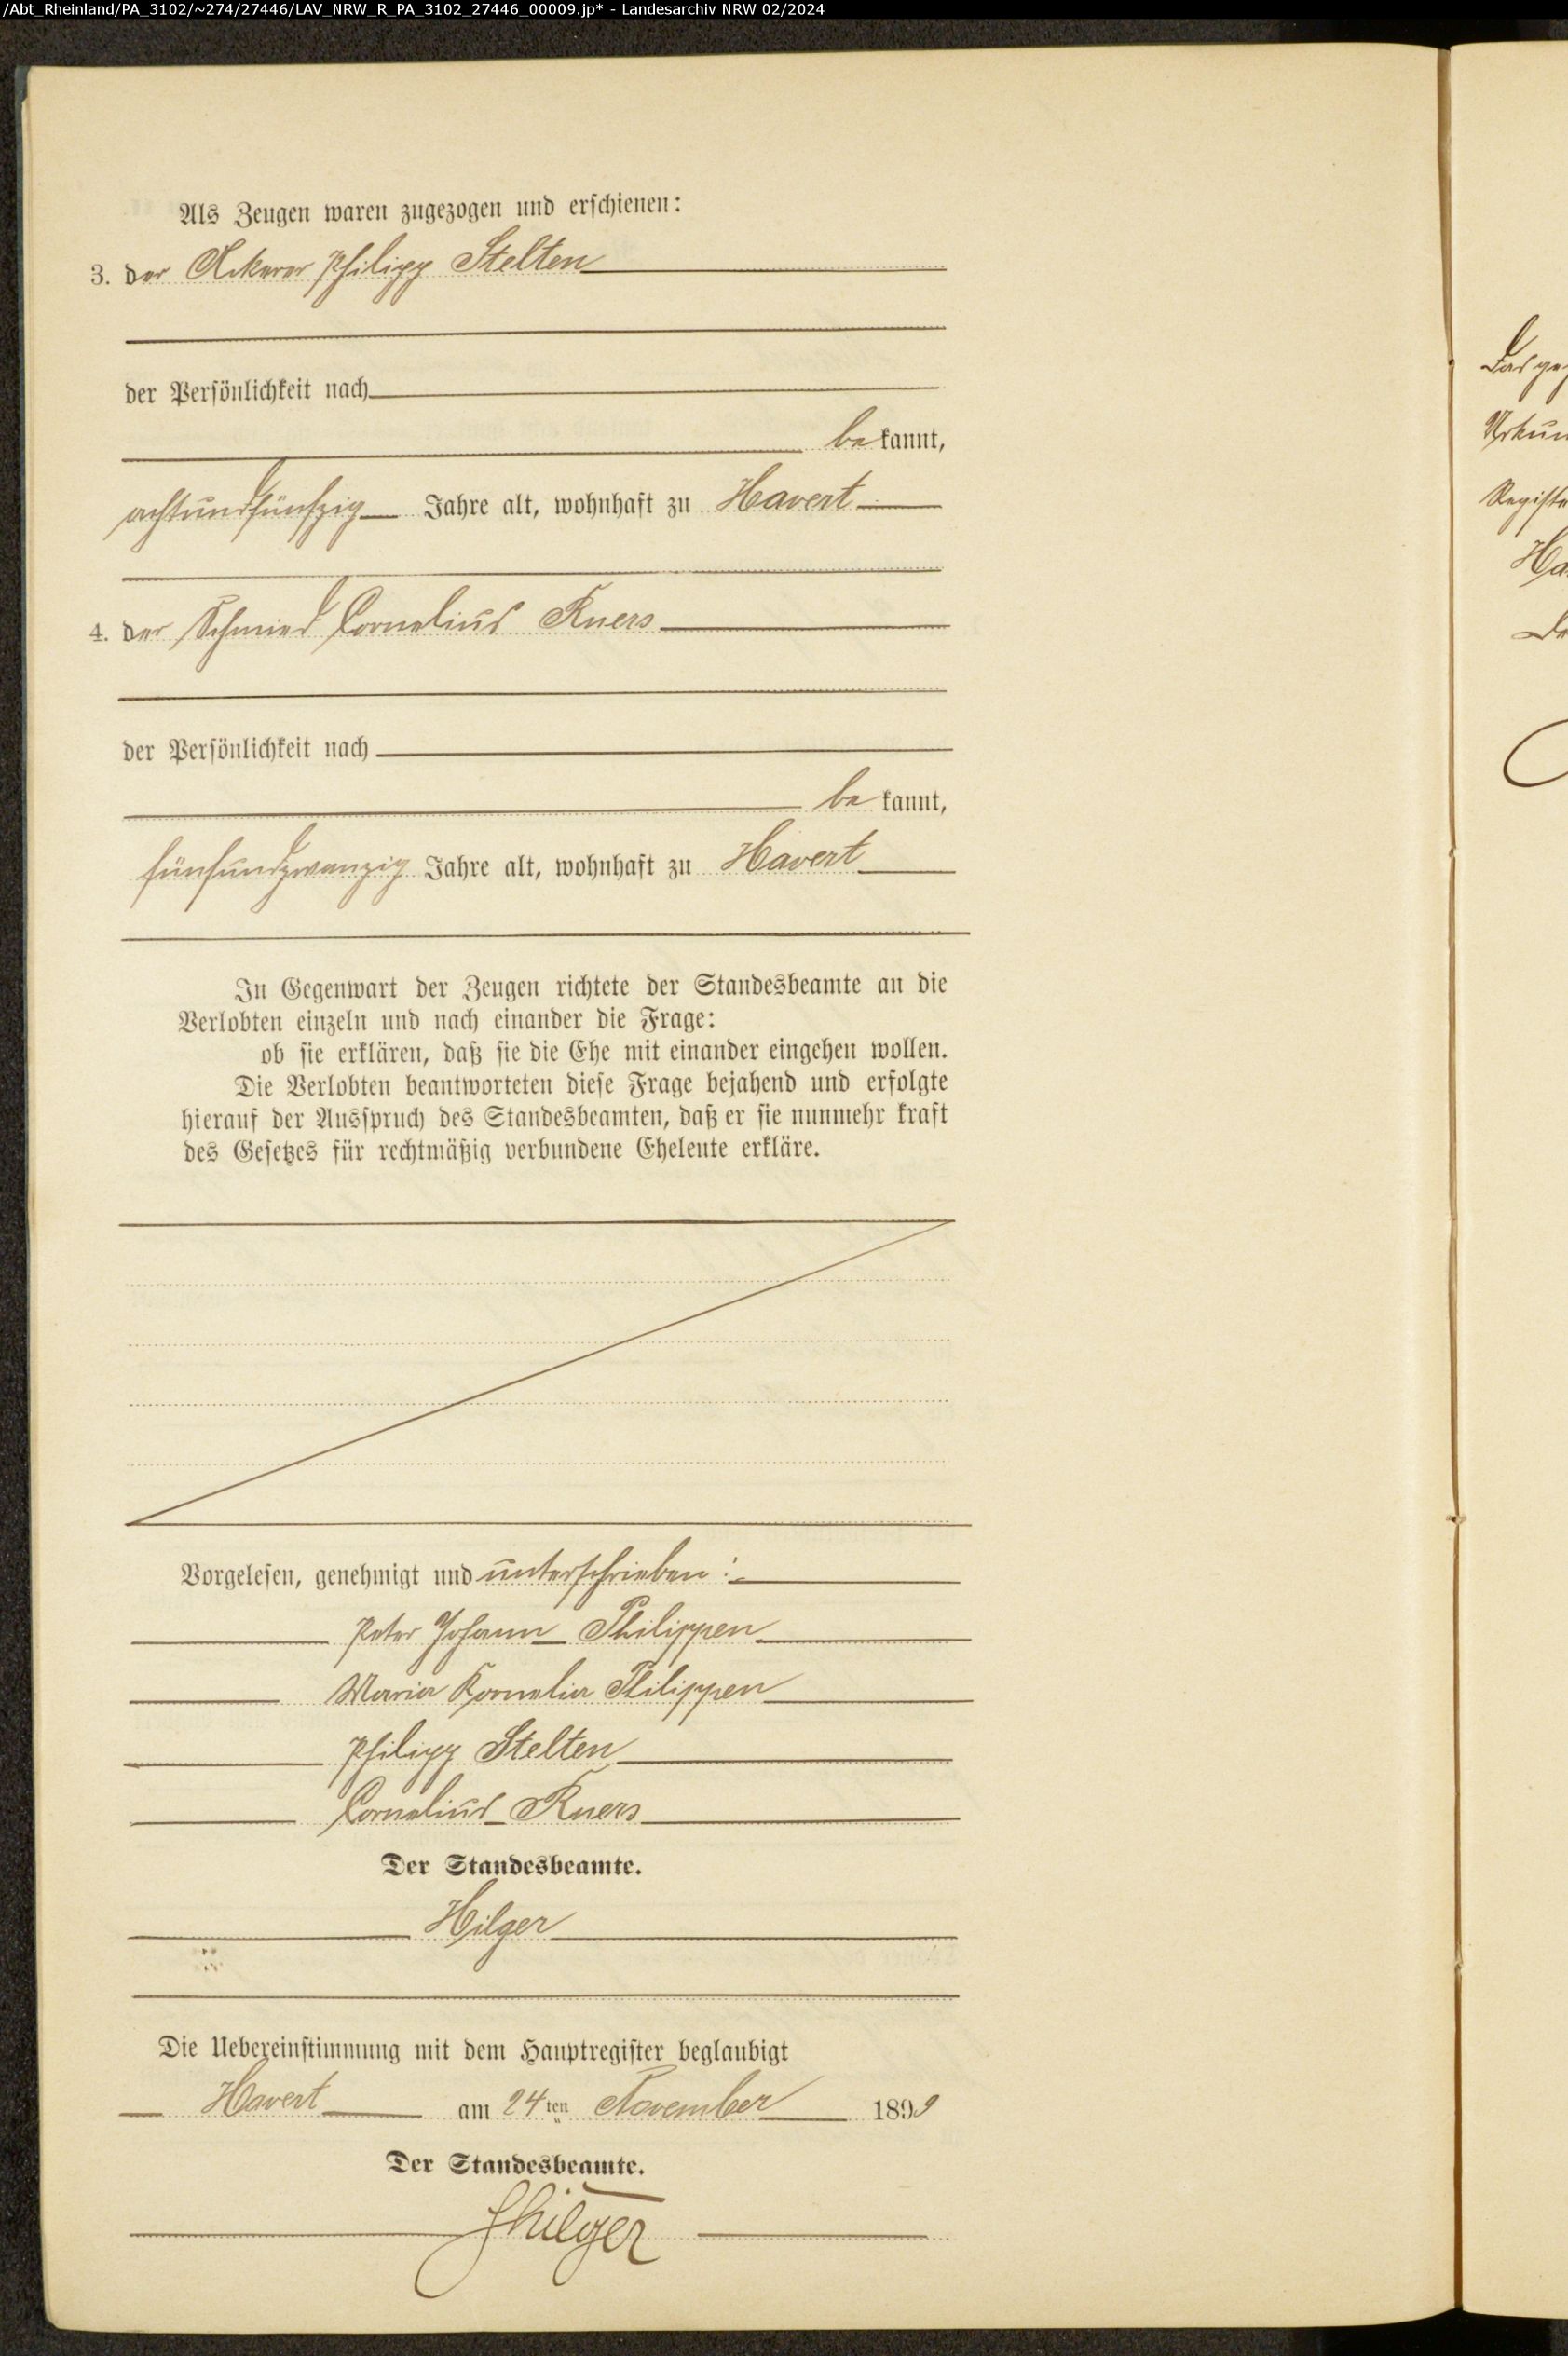 /Abt_Rheinland/PA_3102/~274/27446/LAV_NRW_R_PA_3102_27446_00009.jp* - Landesarchiv NRW 02/2024
Als Zeugen waren zugezogen und erschienen:
3. der Ackerer Philipp Stelten
der Persönlichkeit nach
bekannt,
achtundfünfzig Jahre alt, wohnhaft zu Havert
4. der Schmied Cornelius Ruers
der Persönlichkeit nach
bekannt,
fünfundzwanzig Jahre alt, wohnhaft zu Havert
In Gegenwart der Zeugen richtete der Standesbeamte an die
Verlobten einzeln und nach einander die Frage:
ob sie erklären, daß sie die Ehe mit einander eingehen wollen.
Die Verlobten beantworteten diese Frage bejahend und erfolgte
hierauf der Ausspruch des Standesbeamten, daß er sie nunmehr kraft
des Gesetzes für rechtmäßig verbundene Eheleute erkläre.
Vorgelesen, genehmigt und unterschrieben:
Peter Johann Philippen
Maria Kornelia Philippen
Philipp Stelten
Cornelius Ruers
Der Standesbeamte.
Hilger
Die Uebereinstimmung mit dem Hauptregister beglaubigt
Havert am 24ten November 1899
Der Standesbeamte.
Hilger